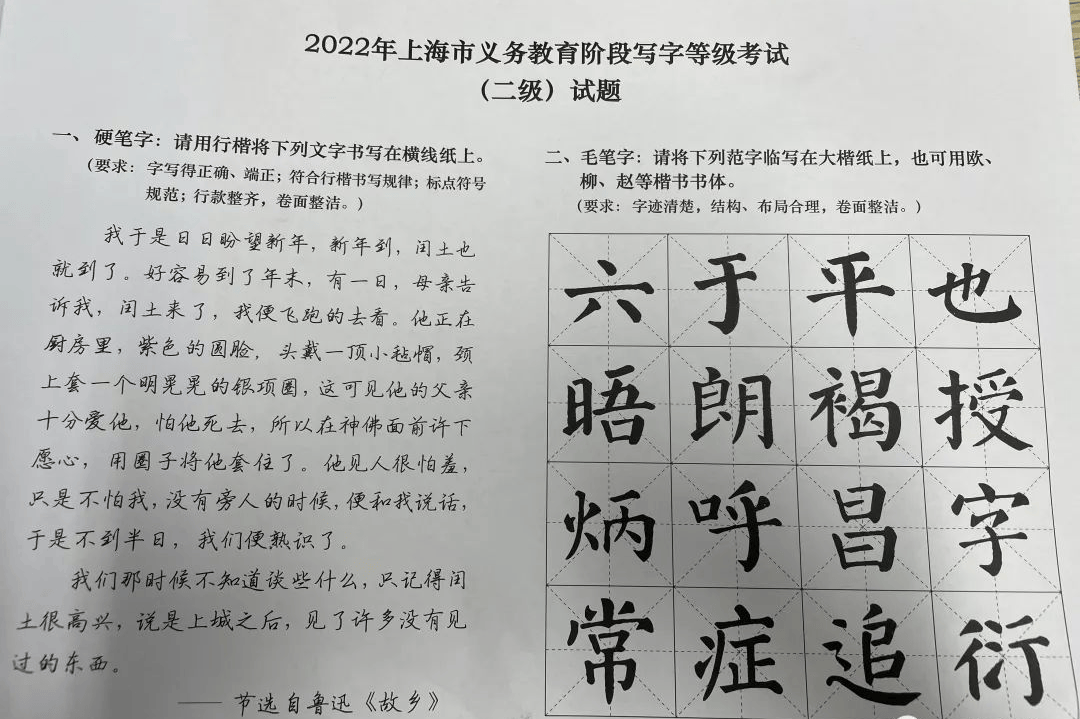 2022年上海市义务教育阶段写字等级考试
（二级）试题
一、硬笔字：请用行楷将下列文字书写在横线纸上。
（要求：字写得正确、端正；符合行楷书写规律；标点符号
规范；行款整齐，卷面整洁。）
我于是日日盼望新年，新年到，闰土也
就到了。好容易到了年末，有一日，母亲告
诉我，闰土来了，我便飞跑的去看。他正在
厨房里，紫色的圆脸，头戴一顶小毡帽，颈
上套一个明晃晃的银项圈，这可见他的父亲
十分爱他，怕他死去，所以在神佛面前许下
愿心，用圈子将他套住了。他见人很怕羞，
只是不怕我，没有旁人的时候，便和我说话，
于是不到半日，我们便熟识了。
我们那时候不知道谈些什么，只记得闰
土很高兴，说是上城之后，见了许多没有见
过的东西。
—— 节选自鲁迅《故乡》
二、毛笔字：请将下列范字临写在大楷纸上，也可用欧、
柳、赵等楷书书体。
（要求：字迹清楚，结构、布局合理，卷面整洁。）
六于平也
晤朗褐授
炳呼昌字
常症追衍